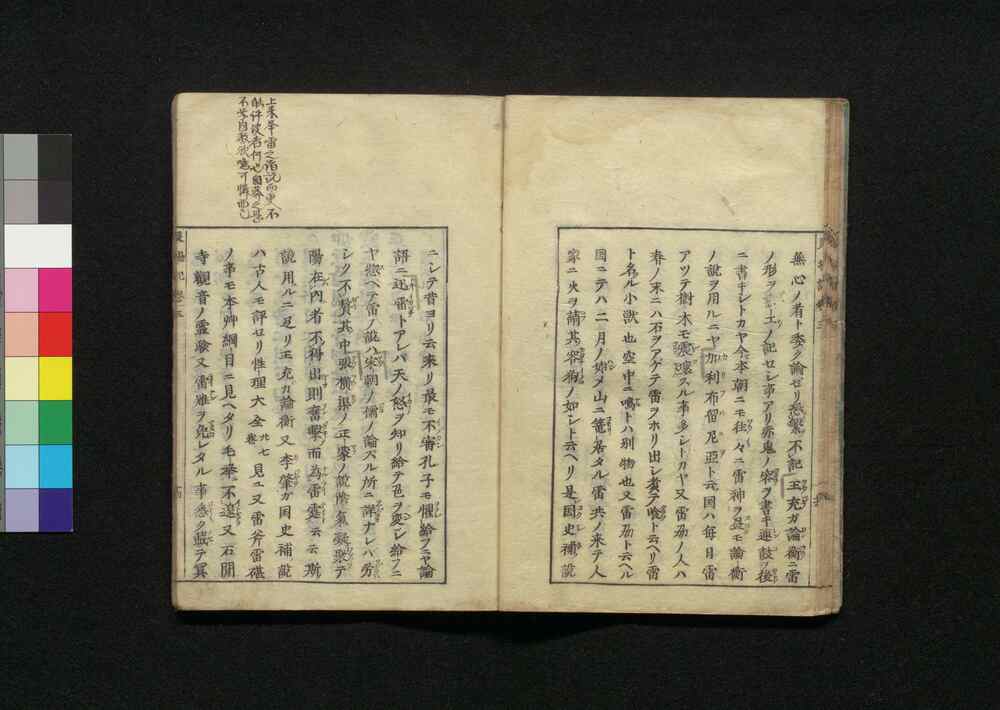 無心ノ者ト委ク論ゼリ恐繁不記王充ガ論衡ニ雷
ノ形ヲ畫エノ記セシ事アリ赤鬼ノ容ヲ書キ連鼓ヲ後
ニ書キシトカヤ今本朝ニモ往々ニ雷神ヲ是モ論衡
ノ説ヲ用ルニヤ加利布留尼亞ト云国ハ毎日雷
アツテ樹木モ震壊スル事多シトカヤ又雷刕ノ人ハ
春ノ末ニハ石ヲアゲテ雷ヲホリ出シ煮テ喰ト云ヘリ雷
ト名ル小獣也空中ニ鳴トハ別物也又雷刕ト云ヘル
国ニテハ二月ノ始メ山ニ篭居タル雷共ノ来テ人
家ニ火ヲ請其容狗ノ如シト云ヘリ是国史補説
ニシテ昔ヨリ云来リ最モ不審孔子モ懼給フニヤ論
語ニ迅雷トアレバ天ノ怒ヲ知リ給テ色ヲ変シ給フニ
ヤ惣ヘテ雷ノ説ハ宋朝ノ儒ノ論スル所ニ詳ナレハ労
シク不贅其中張横渠ノ正蒙ノ説陰氣凝聚テ
陽在内者不得出則奮撃而為雷霆云云斯
説用ルニ足リ王充カ論衡又李肇ガ国史補説
ハ古人モ評セリ性理大全卷七見ユ又雷斧雷碪
ノ事モ本艸綱目ニ見ヘタリ毛舉不遑又石間
寺觀音ノ靈驗又雷難ヲ免レタル事
上来举雷之諸説而更不